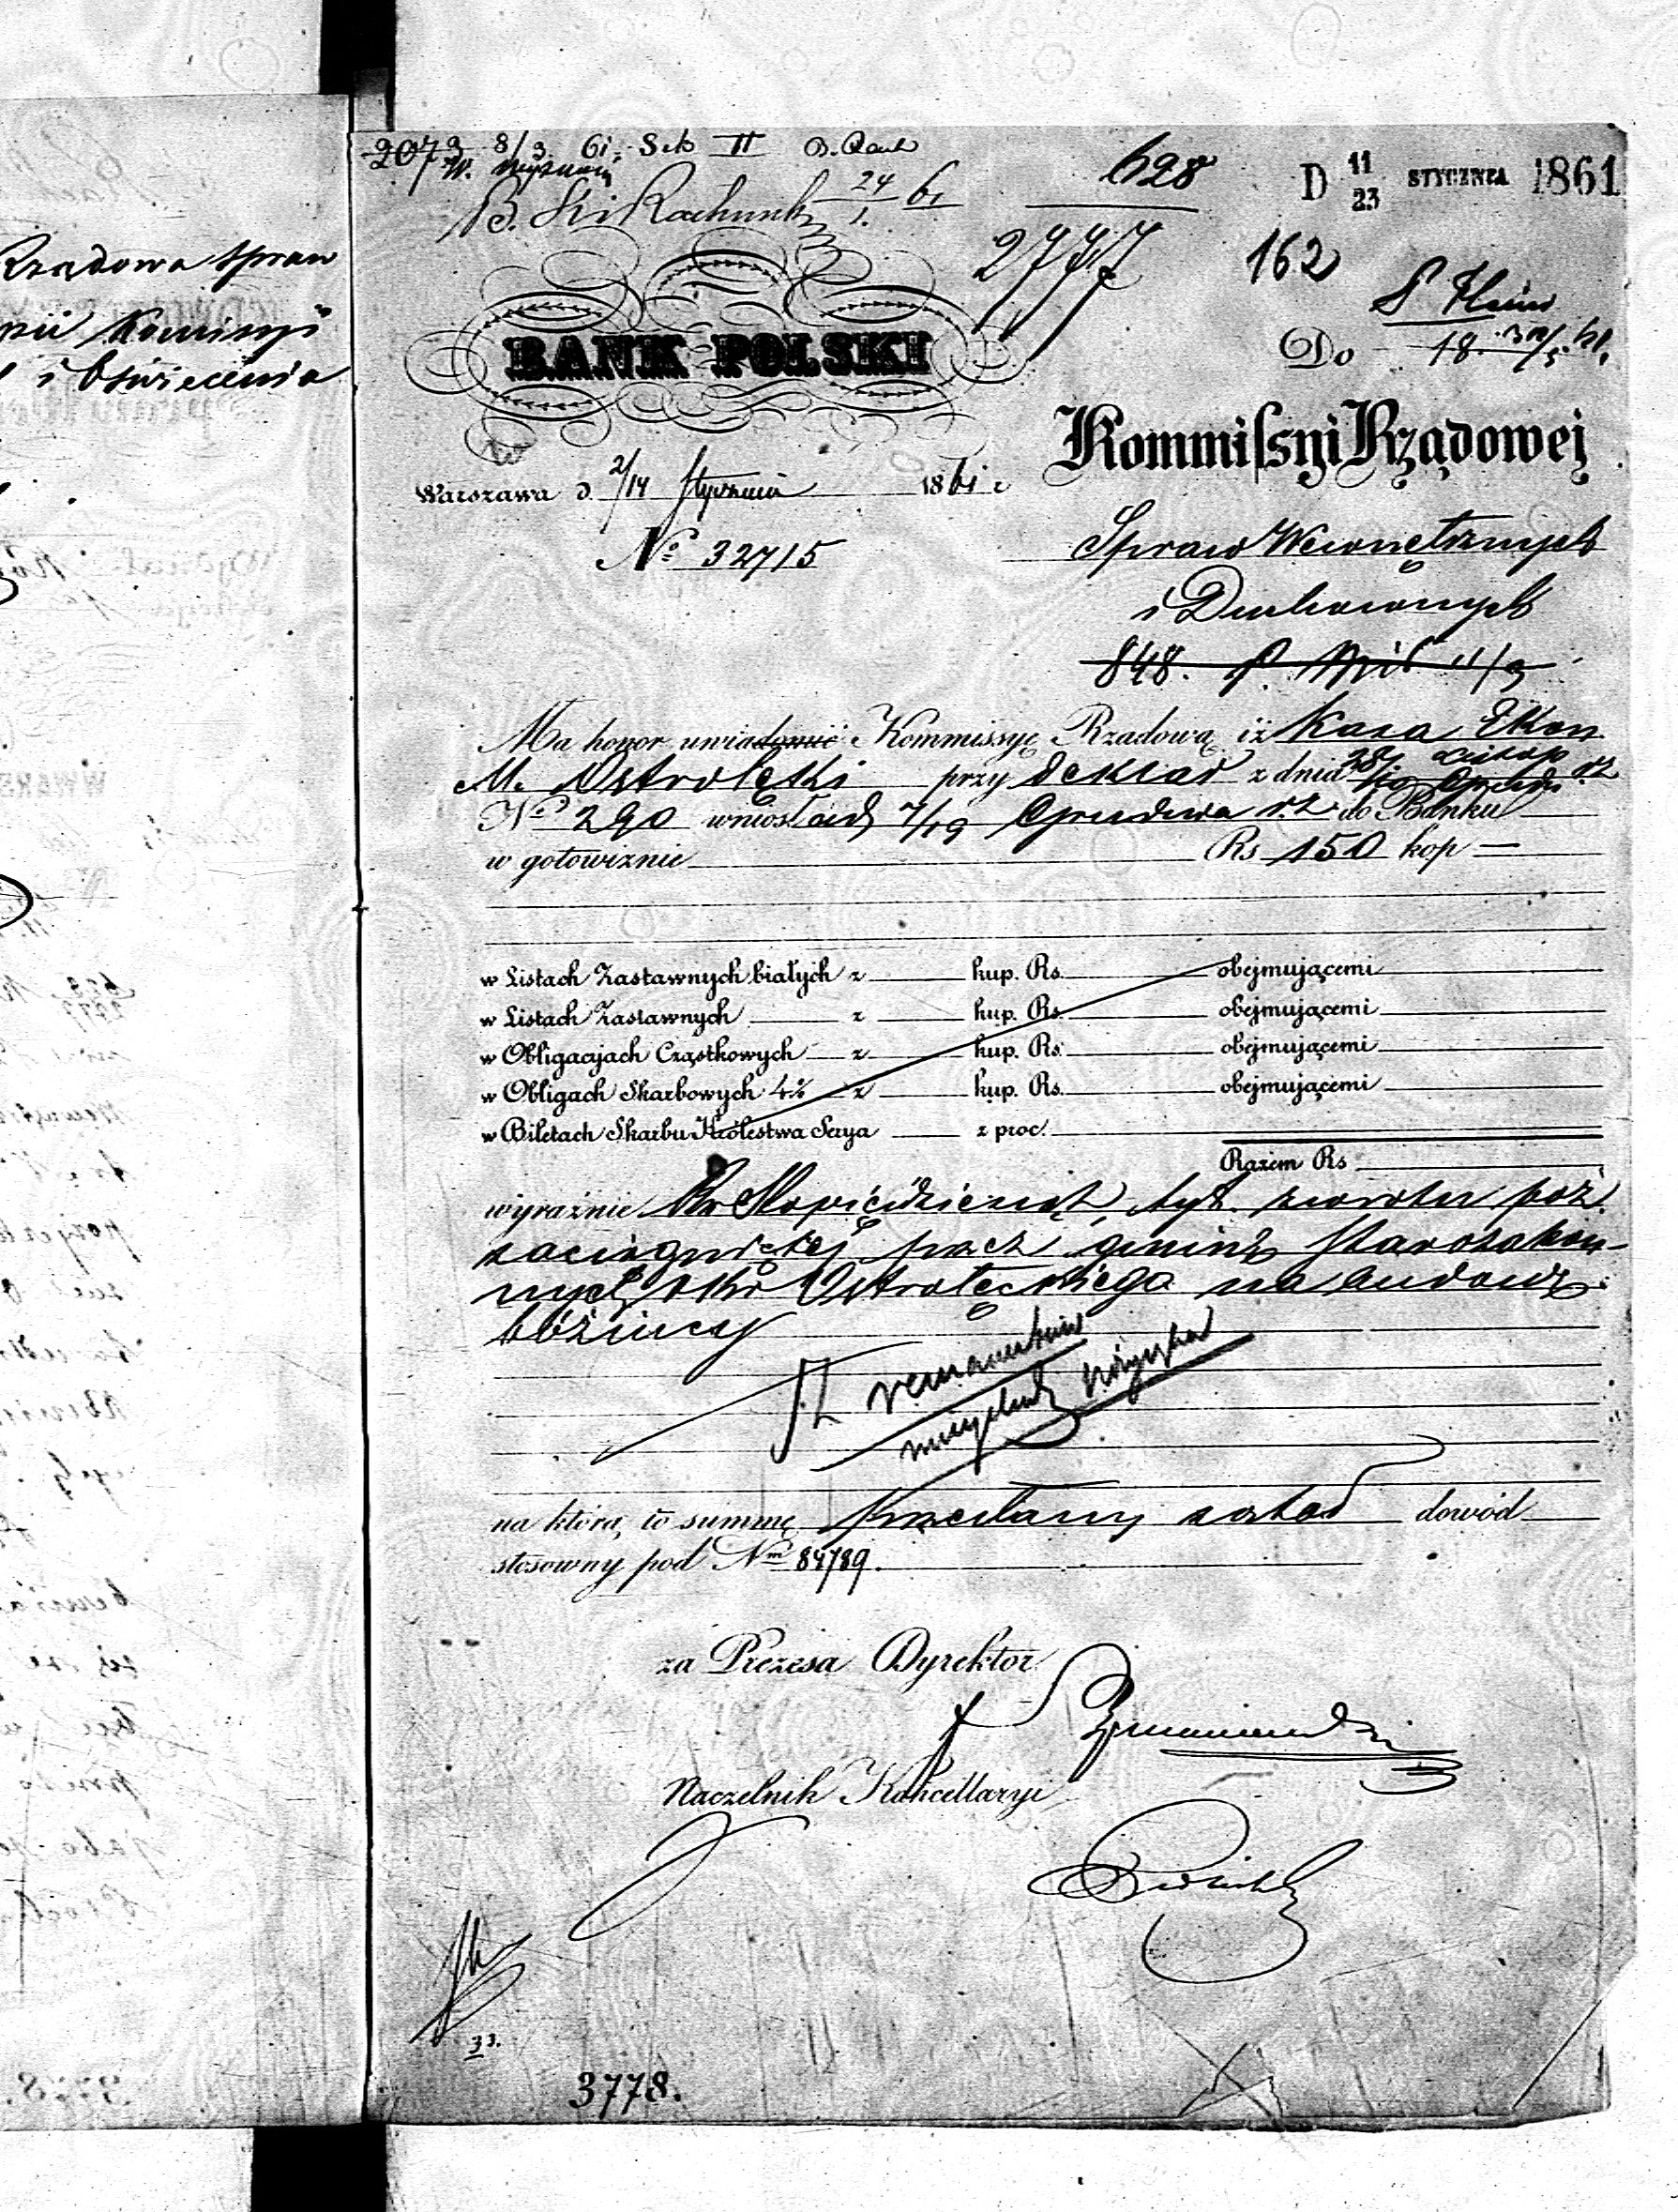 Rządowa Spraw
Kommisyi
i Oświecenia
2073 8/3 61. Sek II
B. Ski Rachunk 24/1. 61
628
2777
D 11/23 STYCZNIA 1861
162
BANK POLSKI
Do
18
Kommissyi Rządowej
Warszawa d. 2/14 Stycznia 1861 r
No 32715
Spraw Wewnętrznych
i Duchownych
848.
Ma honor uwiadomić Kommissyę Rządową iż Kassa Ekon.
M. Ostrołęki przy deklar z dnia
No 290 wniosła d. 7/19 Grudnia r.z. do Banku
w gotowiznie Rs 150 kop —
w Listach Zastawnych białych z kup. Rs. obejmującemi
w Listach Zastawnych z kup. Rs. obejmującemi
w Obligacjach Cząstkowych z kup. Rs. obejmującemi
w Obligach Skarbowych 4% z kup. Rs. obejmującemi
w Biletach Skarbu Królestwa Serya z proc.
Razem Rs
wyraźnie Rs Stopięćdziesiąt, tyt. zwrotu poż.
zaciągniętej przez gminę Starozakon-
nych Okr Ostrołęckiego na budowę
bóżnicy
na którą to summę przesłany został dowód
stosowny pod Nm 84789.
za Prezesa Dyrektor
Naczelnik Kancellaryi
33.
3778.